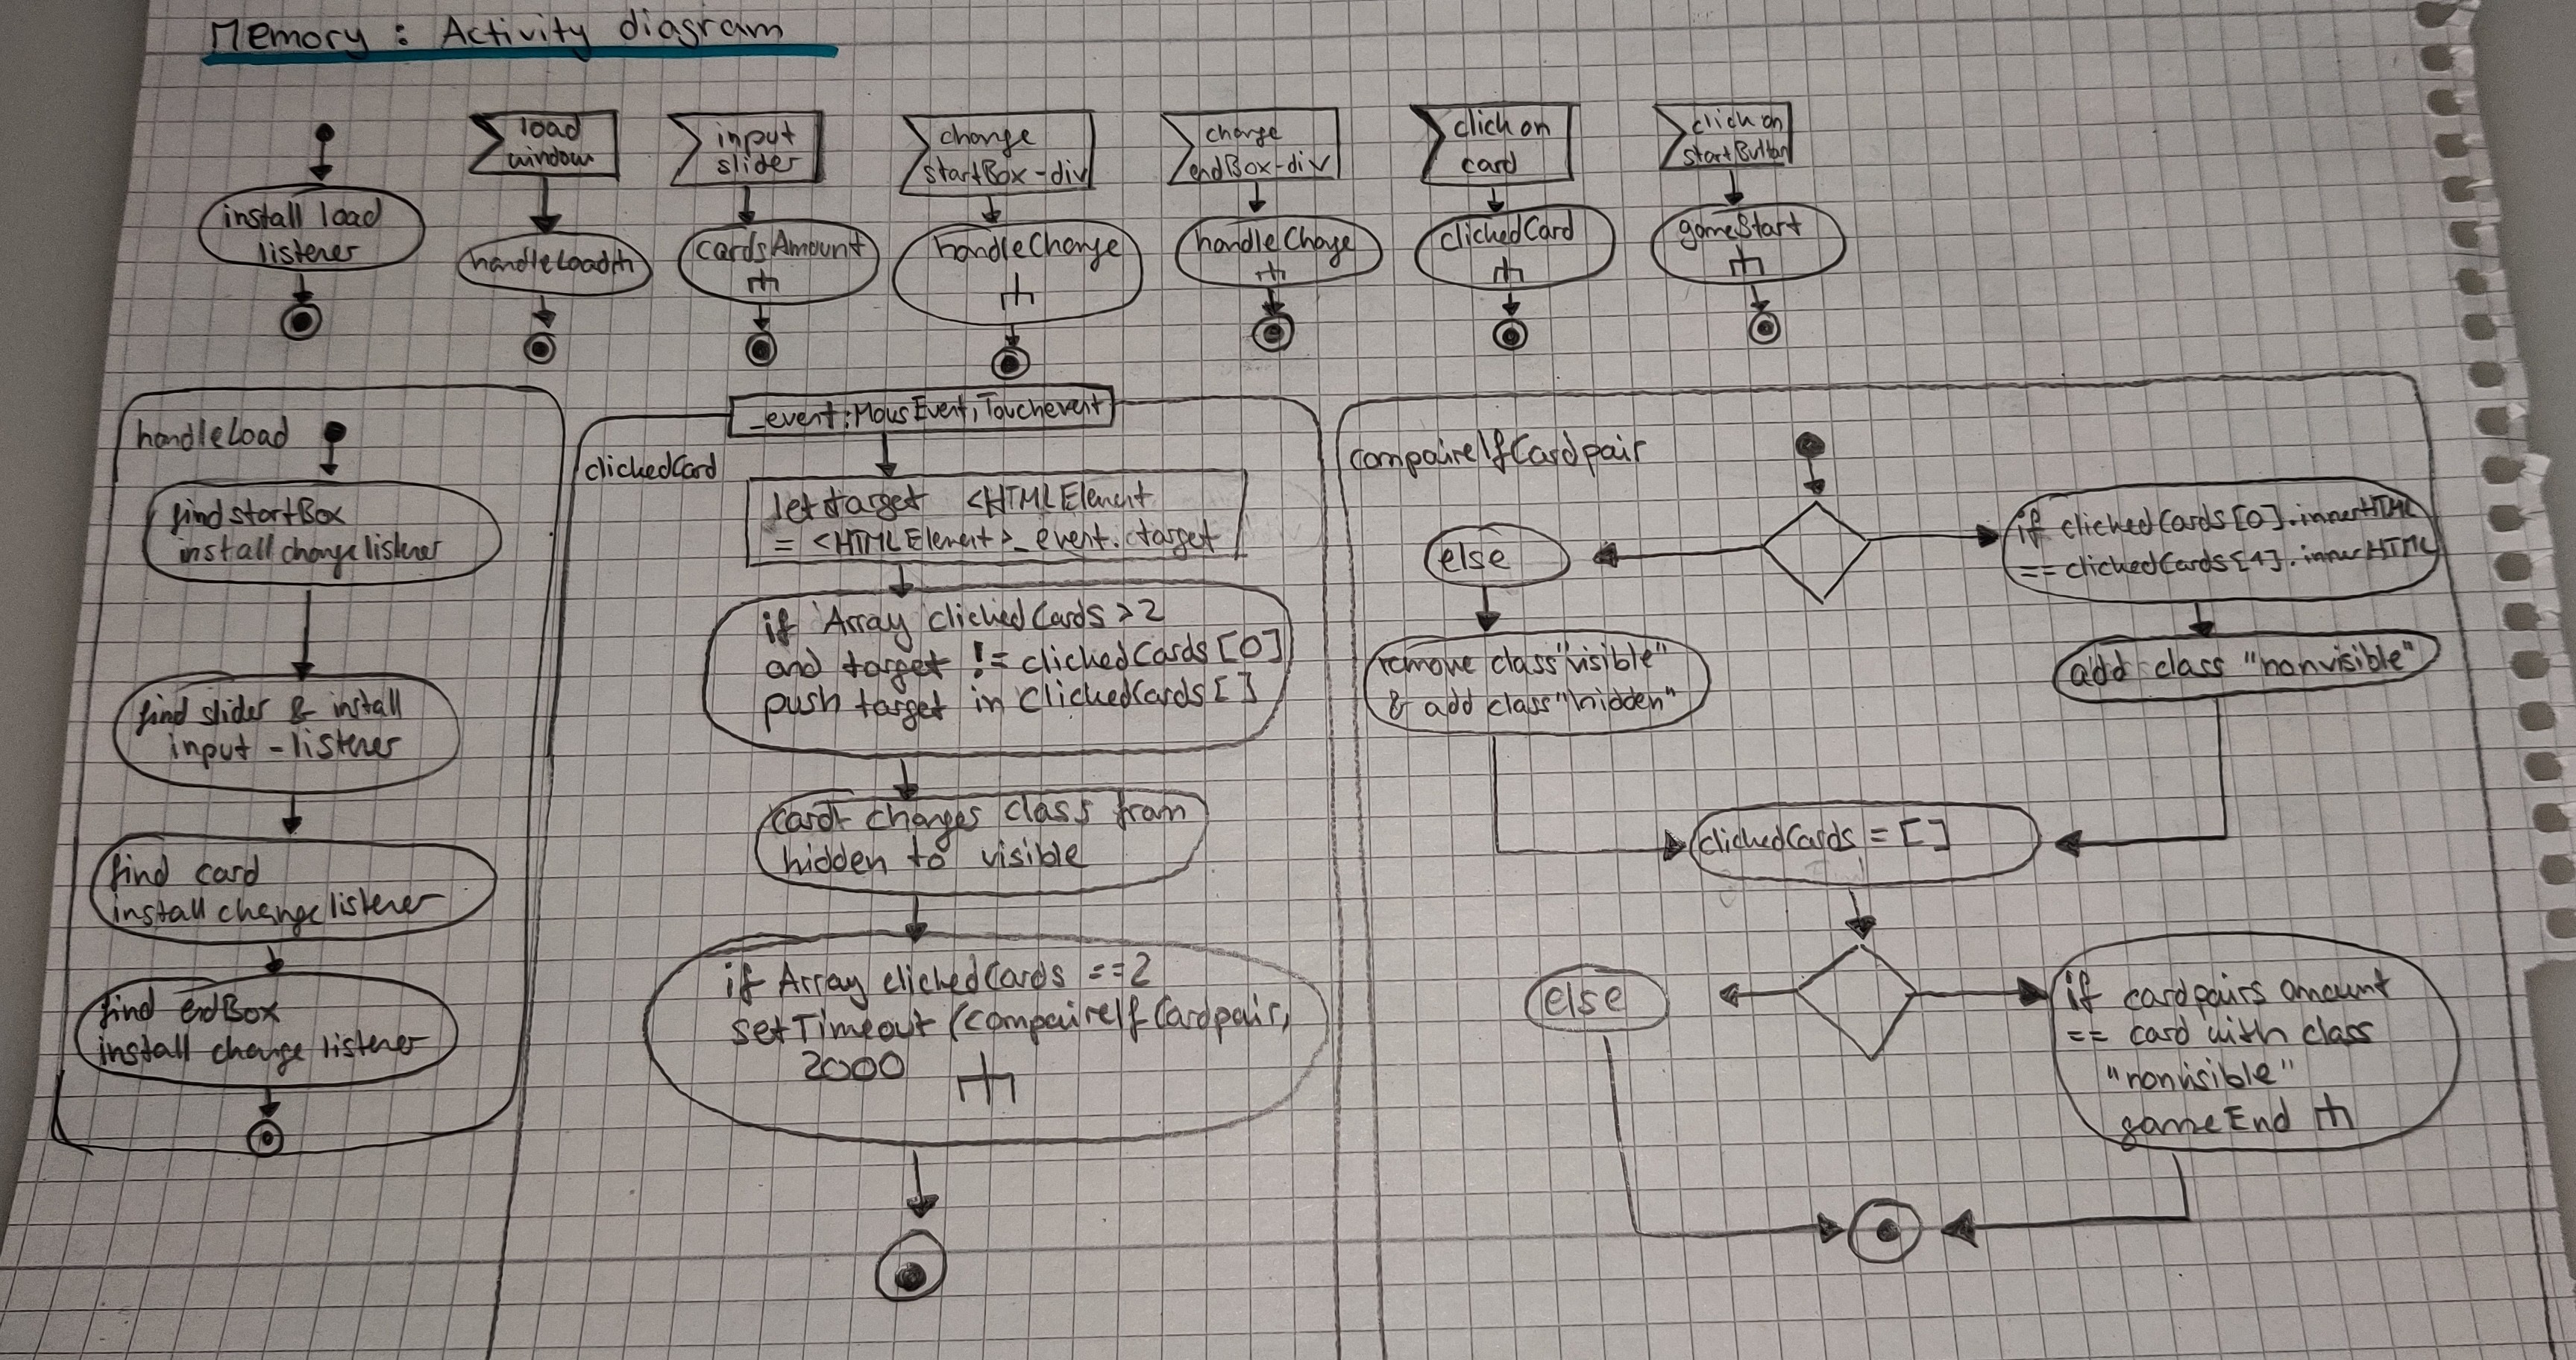 Memory : Activity diagram
install load
listener
load
window
handleLoad
input
slider
cardsAmount
change
startBox-div
handleChange
change
endBox-div
handleChage
click on
card
clickedCard
click on
startButton
gameStart
handleLoad
find startBox
install change listener
find slider & install
input - listener
find card
install change listener
find endBox
install change listener
clickedCard
_event: MousEvent, Touchevent
let target <HTMLElement
= <HTMLElement>_event.target
if Array clickedCards > 2
and target != clickedCards [0]
push target in ClickedCards[]
card changes class from
hidden to visible
if Array clickedCards ==2
setTimeout (compaireIfCardpair,
2000
compaireIfCardpair
if clickedCards[0].innerHTML
== clickedCards[1].innerHTML
else
remove class "visible"
& add class "hidden"
add class "nonvisible"
clickedCards = []
else
if cardpairs amount
== card with class
"nonvisible"
gameEnd